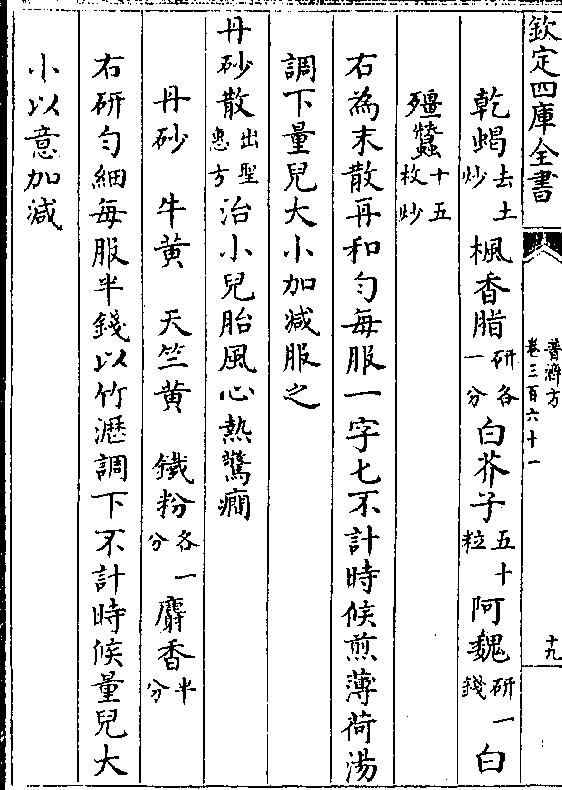 欽定四庫全書
普濟方
卷三百六十一
十九
乾蝎去土炒 楓香脂研各一分 白芥子五十粒 阿魏研一錢 白
殭蠶十五枚炒
右為末散再和勻每服一字匕不計時候煎薄荷湯
調下量兒大小加減服之
丹砂散出聖惠方治小兒胎風心熱驚癇
丹砂 牛黄 天竺黄 鐵粉各一分 麝香半分
右研勻細每服半錢以竹瀝調下不計時候量兒大
小以意加減